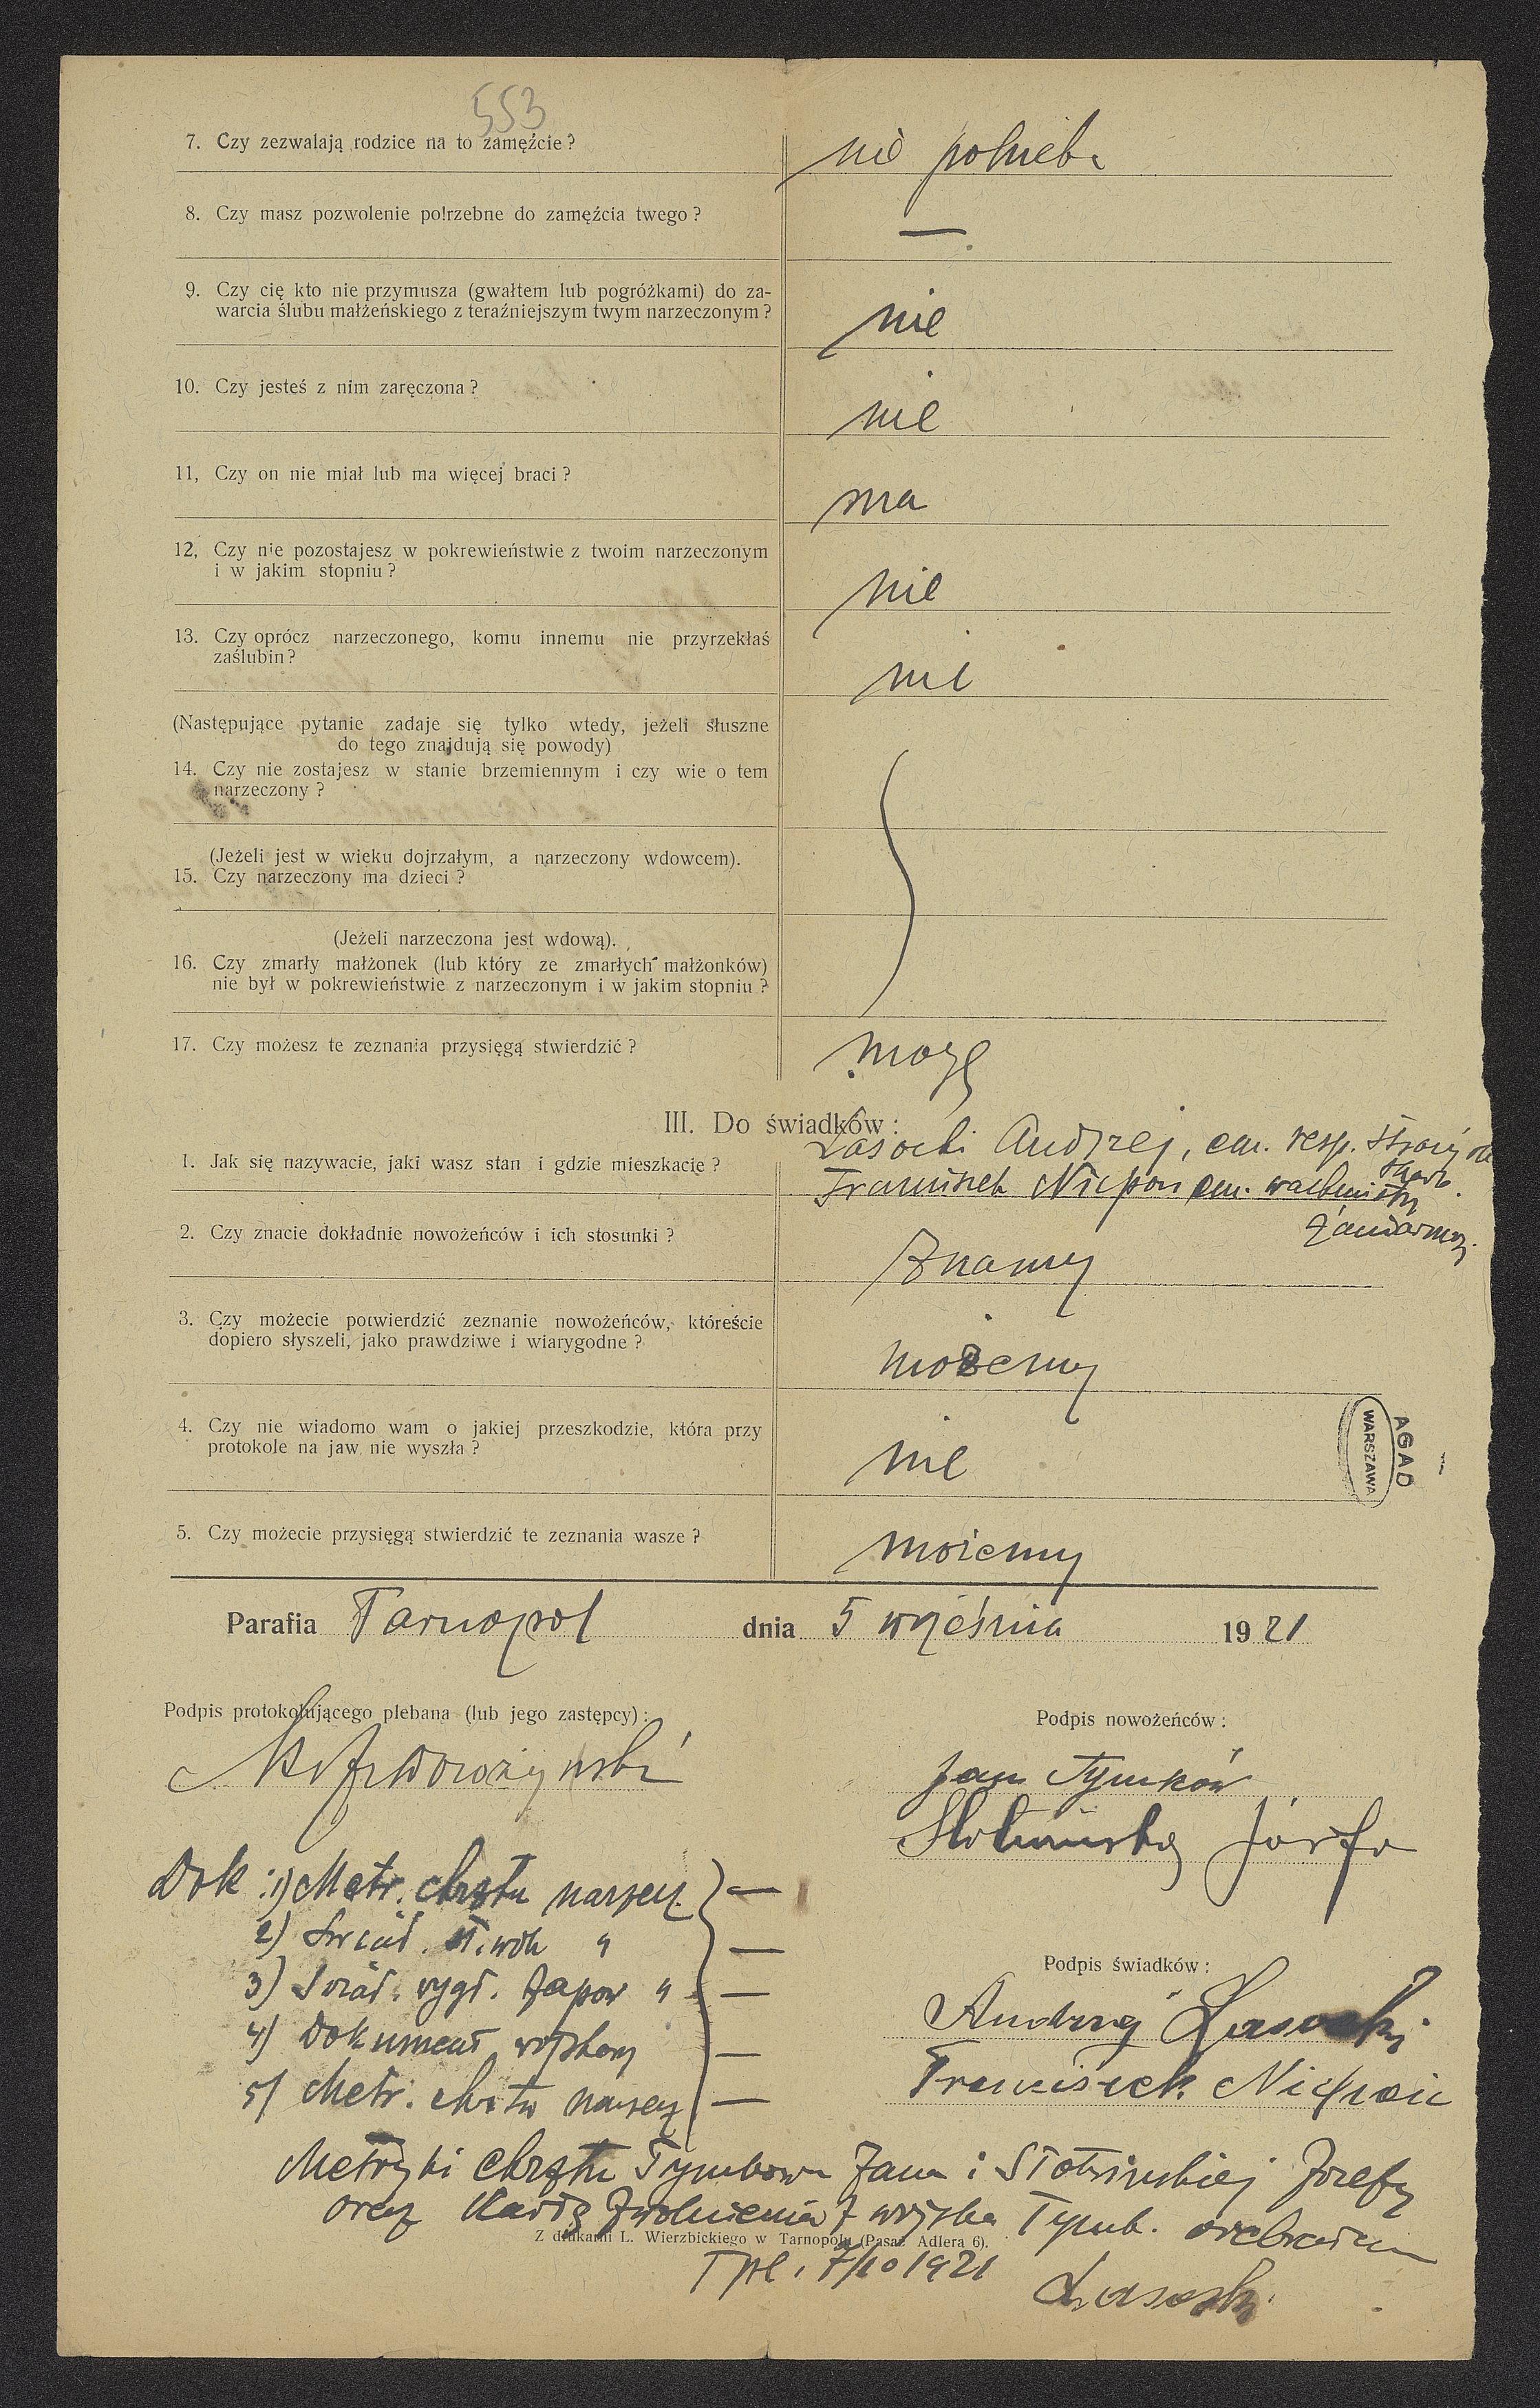 553
7. Czy zezwalają rodzice na to zamęźcie?
nie
8. Czy masz pozwolenie potrzebne do zamęźcia twego?
—
9. Czy cię kto nie przymusza (gwałtem lub pogróżkami) do za-
warcia ślubu małżeńskiego z teraźniejszym twym narzeczonym?
nie
10. Czy jesteś z nim zaręczona?
nie
11, Czy on nie miał lub ma więcej braci?
ma
12, Czy nie pozostajesz w pokrewieństwie z twoim narzeczonym
i w jakim stopniu?
nie
13. Czy oprócz narzeczonego, komu innemu nie przyrzekłaś
zaślubin?
nie
(Następujące pytanie zadaje się tylko wtedy, jeżeli słuszne
do tego znajdują się powody)
14. Czy nie zostajesz w stanie brzemiennym i czy wie o tem
narzeczony?
(Jeżeli jest w wieku dojrzałym, a narzeczony wdowcem).
15. Czy narzeczony ma dzieci?
(Jeżeli narzeczona jest wdową).
16. Czy zmarły małżonek (lub który ze zmarłych małżonków)
nie był w pokrewieństwie z narzeczonym i w jakim stopniu?
17. Czy możesz te zeznania przysięgą stwierdzić?
mogę
III. Do świadków:
1. Jak się nazywacie, jaki wasz stan i gdzie mieszkacie?
Lasocki Andrzej, em. resp. straży
skarb.
Franciszek Niepoń em. wachmistrz
żandarmerj.
2. Czy znacie dokładnie nowożeńców i ich stosunki?
Znamy
3. Czy możecie potwierdzić zeznanie nowożeńców, któreście
dopiero słyszeli, jako prawdziwe i wiarygodne?
możemy
4. Czy nie wiadomo wam o jakiej przeszkodzie, która przy
protokole na jaw nie wyszła?
nie
AGAD
WARSZAWA
5. Czy możecie przysięgą stwierdzić te zeznania wasze?
możemy
Parafia Tarnopol dnia 5 września 1921
Podpis protokołującego plebana (lub jego zastępcy):
Podpis nowożeńców:
Jan Tymków
Józefa
Dok: 1) Metr. chrztu narzecz. —
2) Świad. st. woln " —
3) Świad. wygł. zapow " —
4) Dokument wojskowy —
5) Metr. chrztu narzecz —
Podpis świadków:
Andrzej Lasocki
Franciszek Niepoń
Metryki chrztu Tymkowa Jana i Słotwińskiej Józefy
oraz kartę zwolnienia z wojska Tymk. odebrałem
Z drukarni L. Wierzbickiego w Tarnopolu (Pasaż Adlera 6).
Tpl. 7/10 1921
Lasocki